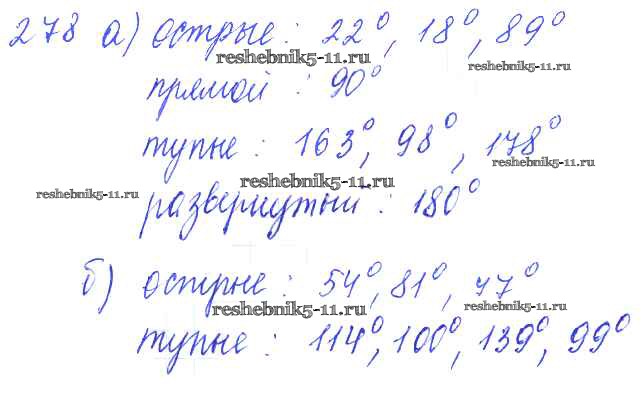 278 а) острые: 22°, 18°, 89°
reshebnik5-11.ru
reshebnik5-11.ru
прямой: 90°
тупые: 163°, 98°, 178°
reshebnik5-11.ru
reshebnik5-11.ru
reshebnik5-11.ru
развернутый: 180°
б) острые: 54°, 81°, 77°
reshebnik5-11.ru
reshebnik5-11.ru
тупые: 114°, 100°, 139°, 99°